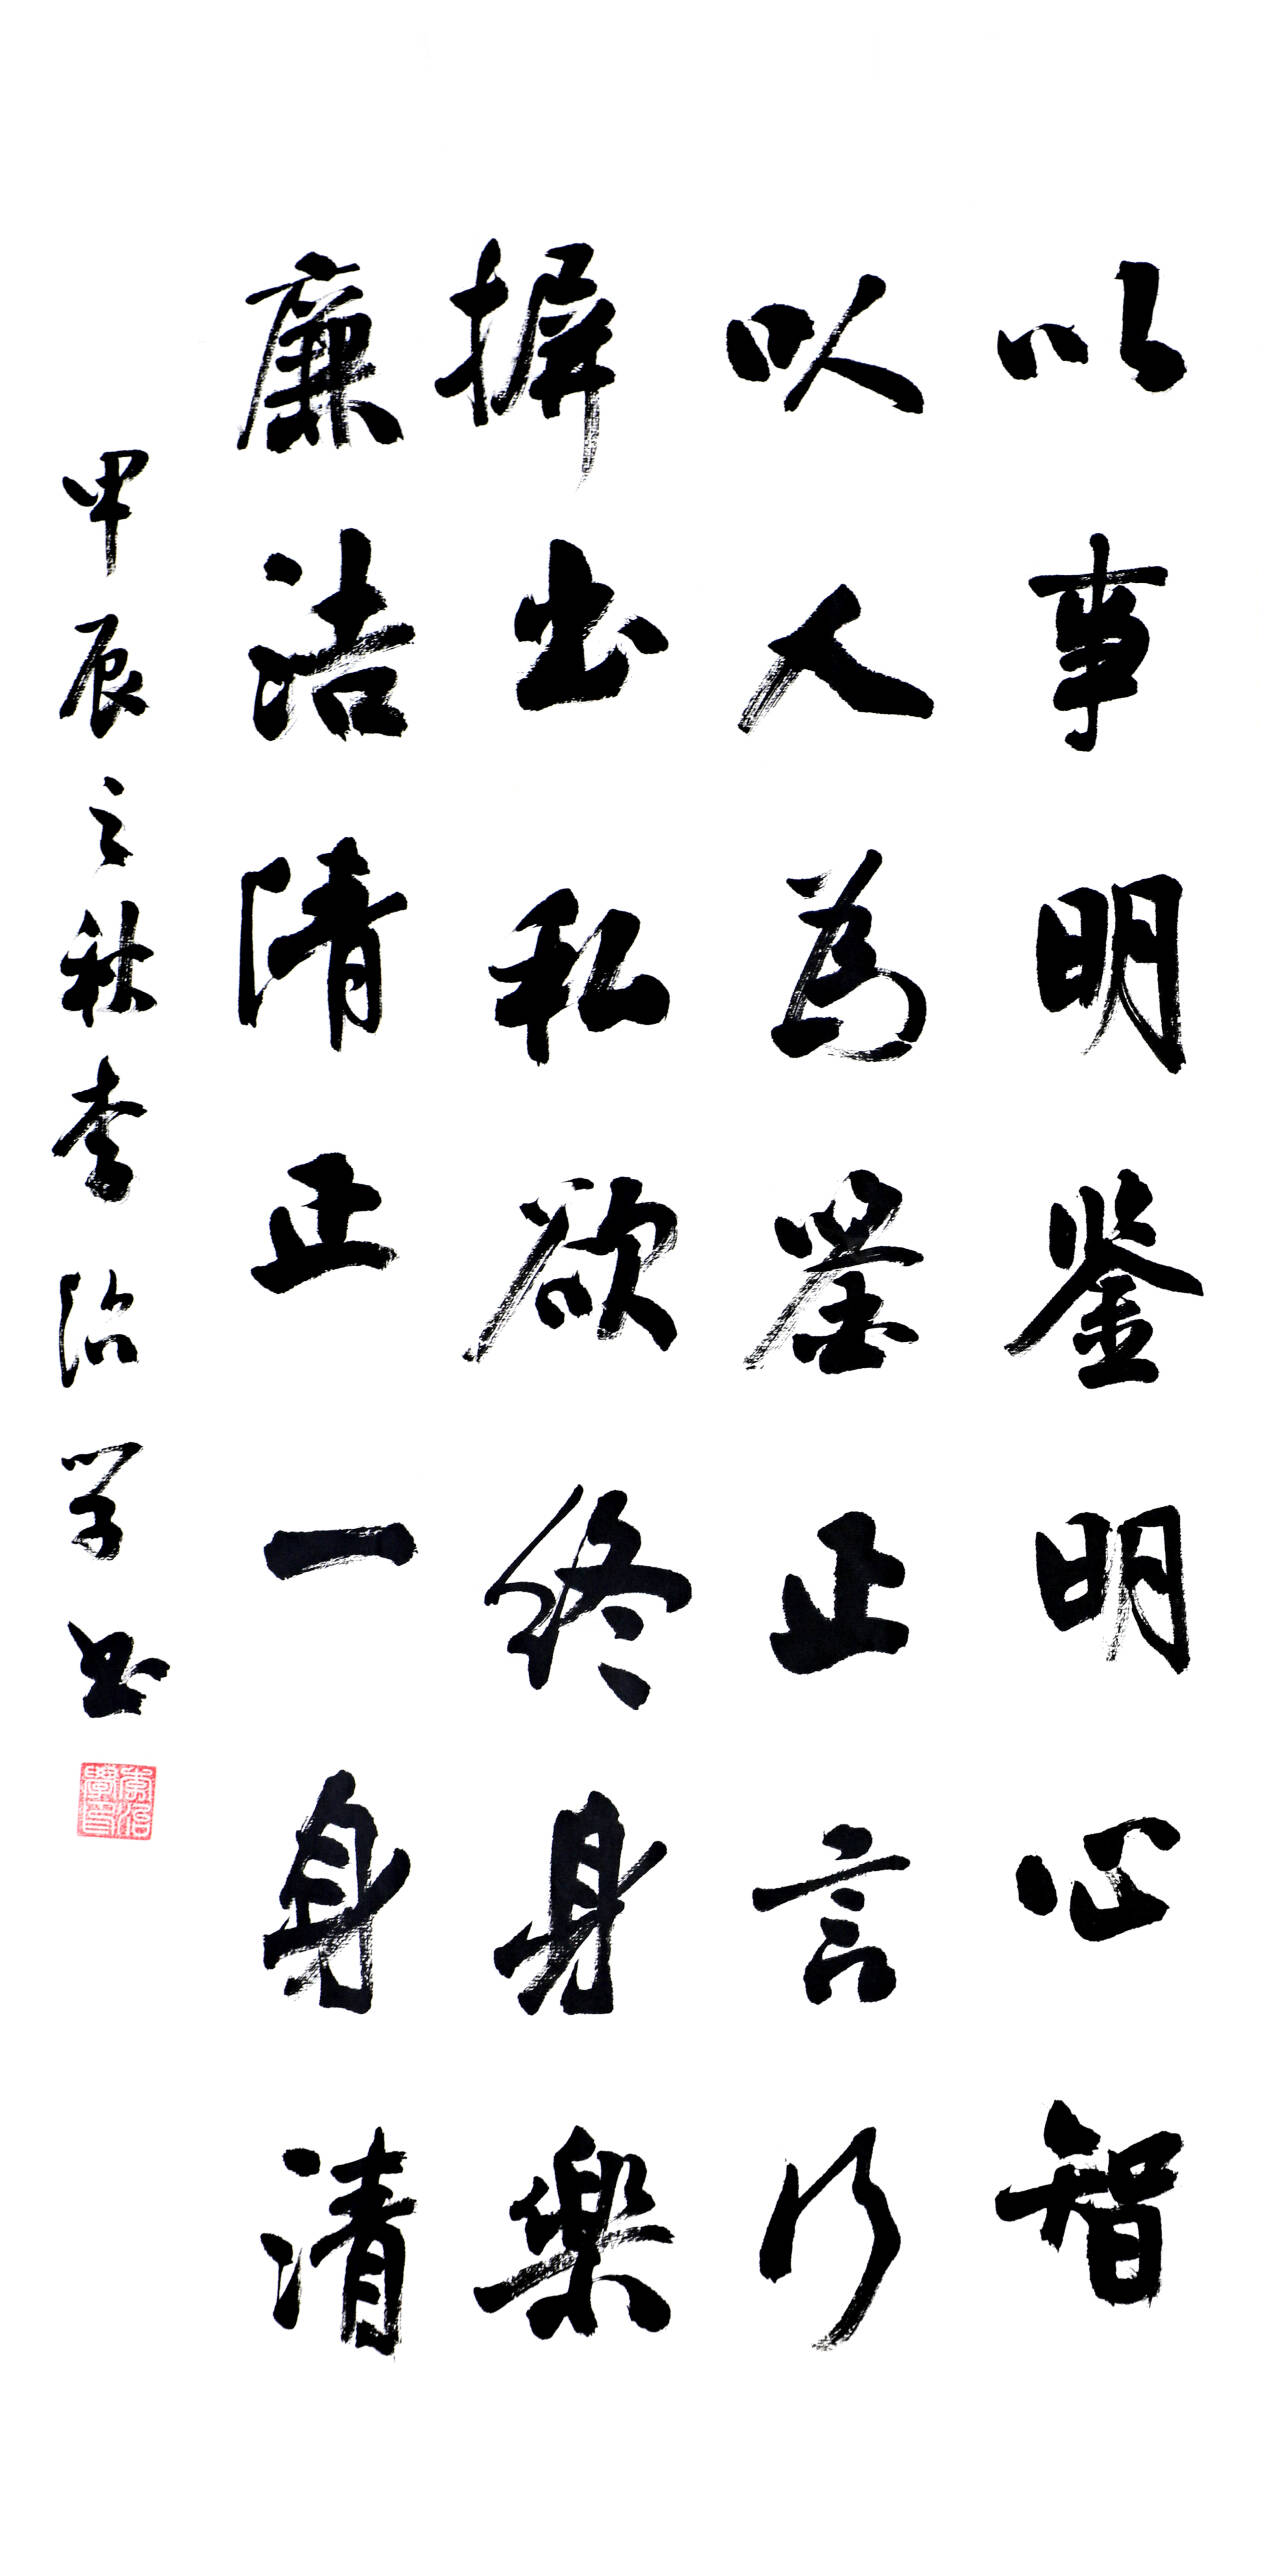 以事明鉴明心智
以人為鉴正言行
摒出私欲终身樂
廉洁清正一身清
甲辰之秋李治学书
李治學印